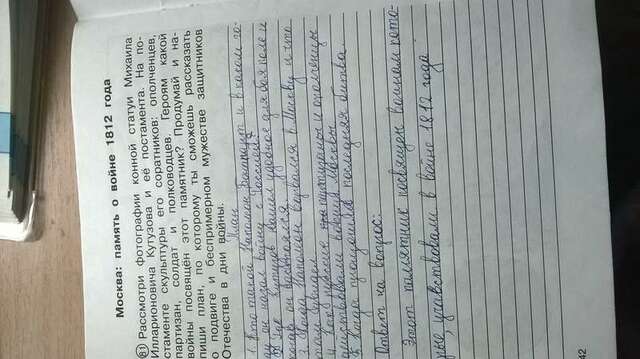 Москва: память о войне 1812 года
81 Рассмотри фотографии конной статуи Михаила
Илларионовича Кутузова и её постамента. На по-
стаменте скульптуры его соратников: ополченцев,
партизан, солдат и полководцев. Героям какой
войны посвящён этот памятник? Продумай и на-
пиши план, по которому ты сможешь рассказать
о подвиге и беспримерном мужестве защитников
Отечества в дни войны.
План
1. Кто такой Наполеон Бонапарт и в каком го-
ду он начал войну с Россией
2. Где Кутузов нашел удобное для боя поле и
когда он состоялся
3. Когда Наполеон ворвался в Москву и что
там увидел
4. Как русские партизаны и ополченцы
действовали вокруг Москвы
5. Когда произошла последняя битва.
Ответ на вопрос:
Этот памятник посвящён воинам кото-
рые, участвовали в войне 1812 года
42